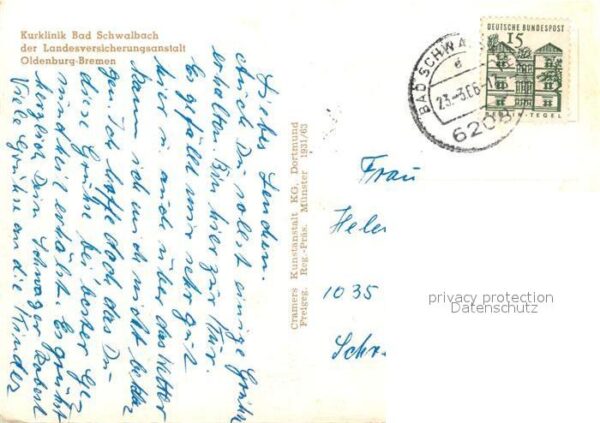 Kurklinik Bad Schwalbach
der Landesversicherungsanstalt
Oldenburg-Bremen
Auch Du sollst einige Grüße
erhalten. Bin hier zur Kur.
Es gefällt mir sehr gut
hier u. auch über das Wetter
kann ich mich nicht bekla
gen. Ich hoffe doch das Du
diese Grüße bei bester Ge
sundheit erhälst. Es grüßt
herzlich Dein Schwager Robert
Viele Grüße an die Kinder
Cramers Kunstanstalt KG. Dortmund
Freigeg. Reg-Präs. Münster 1931/63
DEUTSCHE BUNDESPOST
15
TEGEL
BAD SCHWA
23.-3.66
6208
Frau
Hele
1035
Schr
privacy protection
Datenschutz